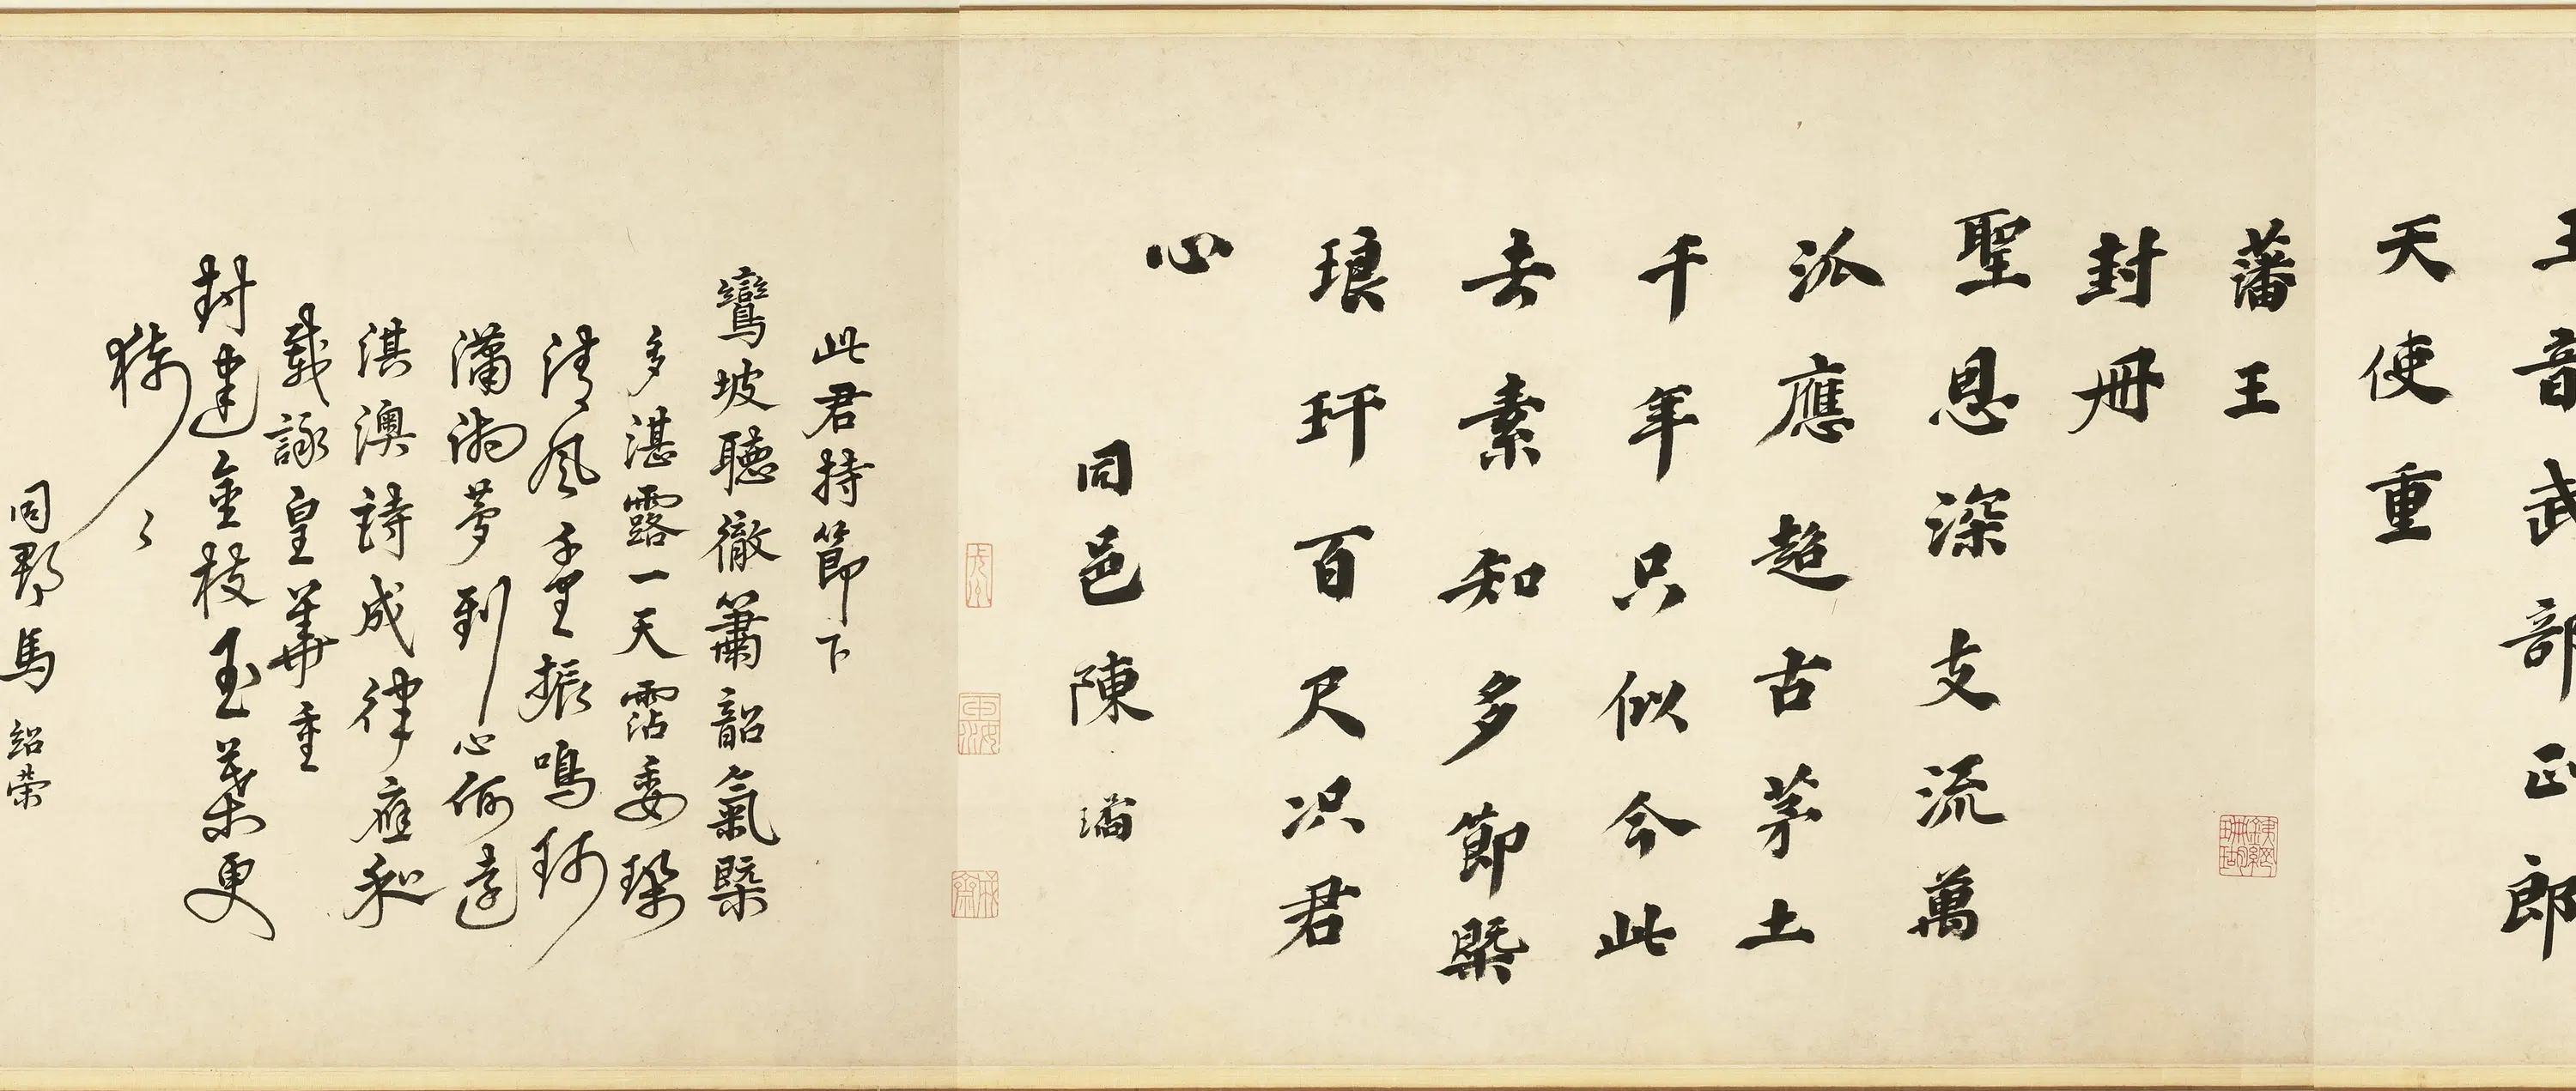 王音武部正郎
天使重
藩王
封冊
聖恩深支流萬
派應超古茅土
千年只似今此
去素知多節槩
琅玕百尺况君
心
同邑陳璠
此君持節下
鸞坡聽徹簫韶氣槩
多湛露一天霑委珮
清風千里振鳴珂
瀟湘夢到心何遠
淇澳詩成律應和
載詠皇華重
封建金枝玉葉更
猗々
同郡馬紹榮